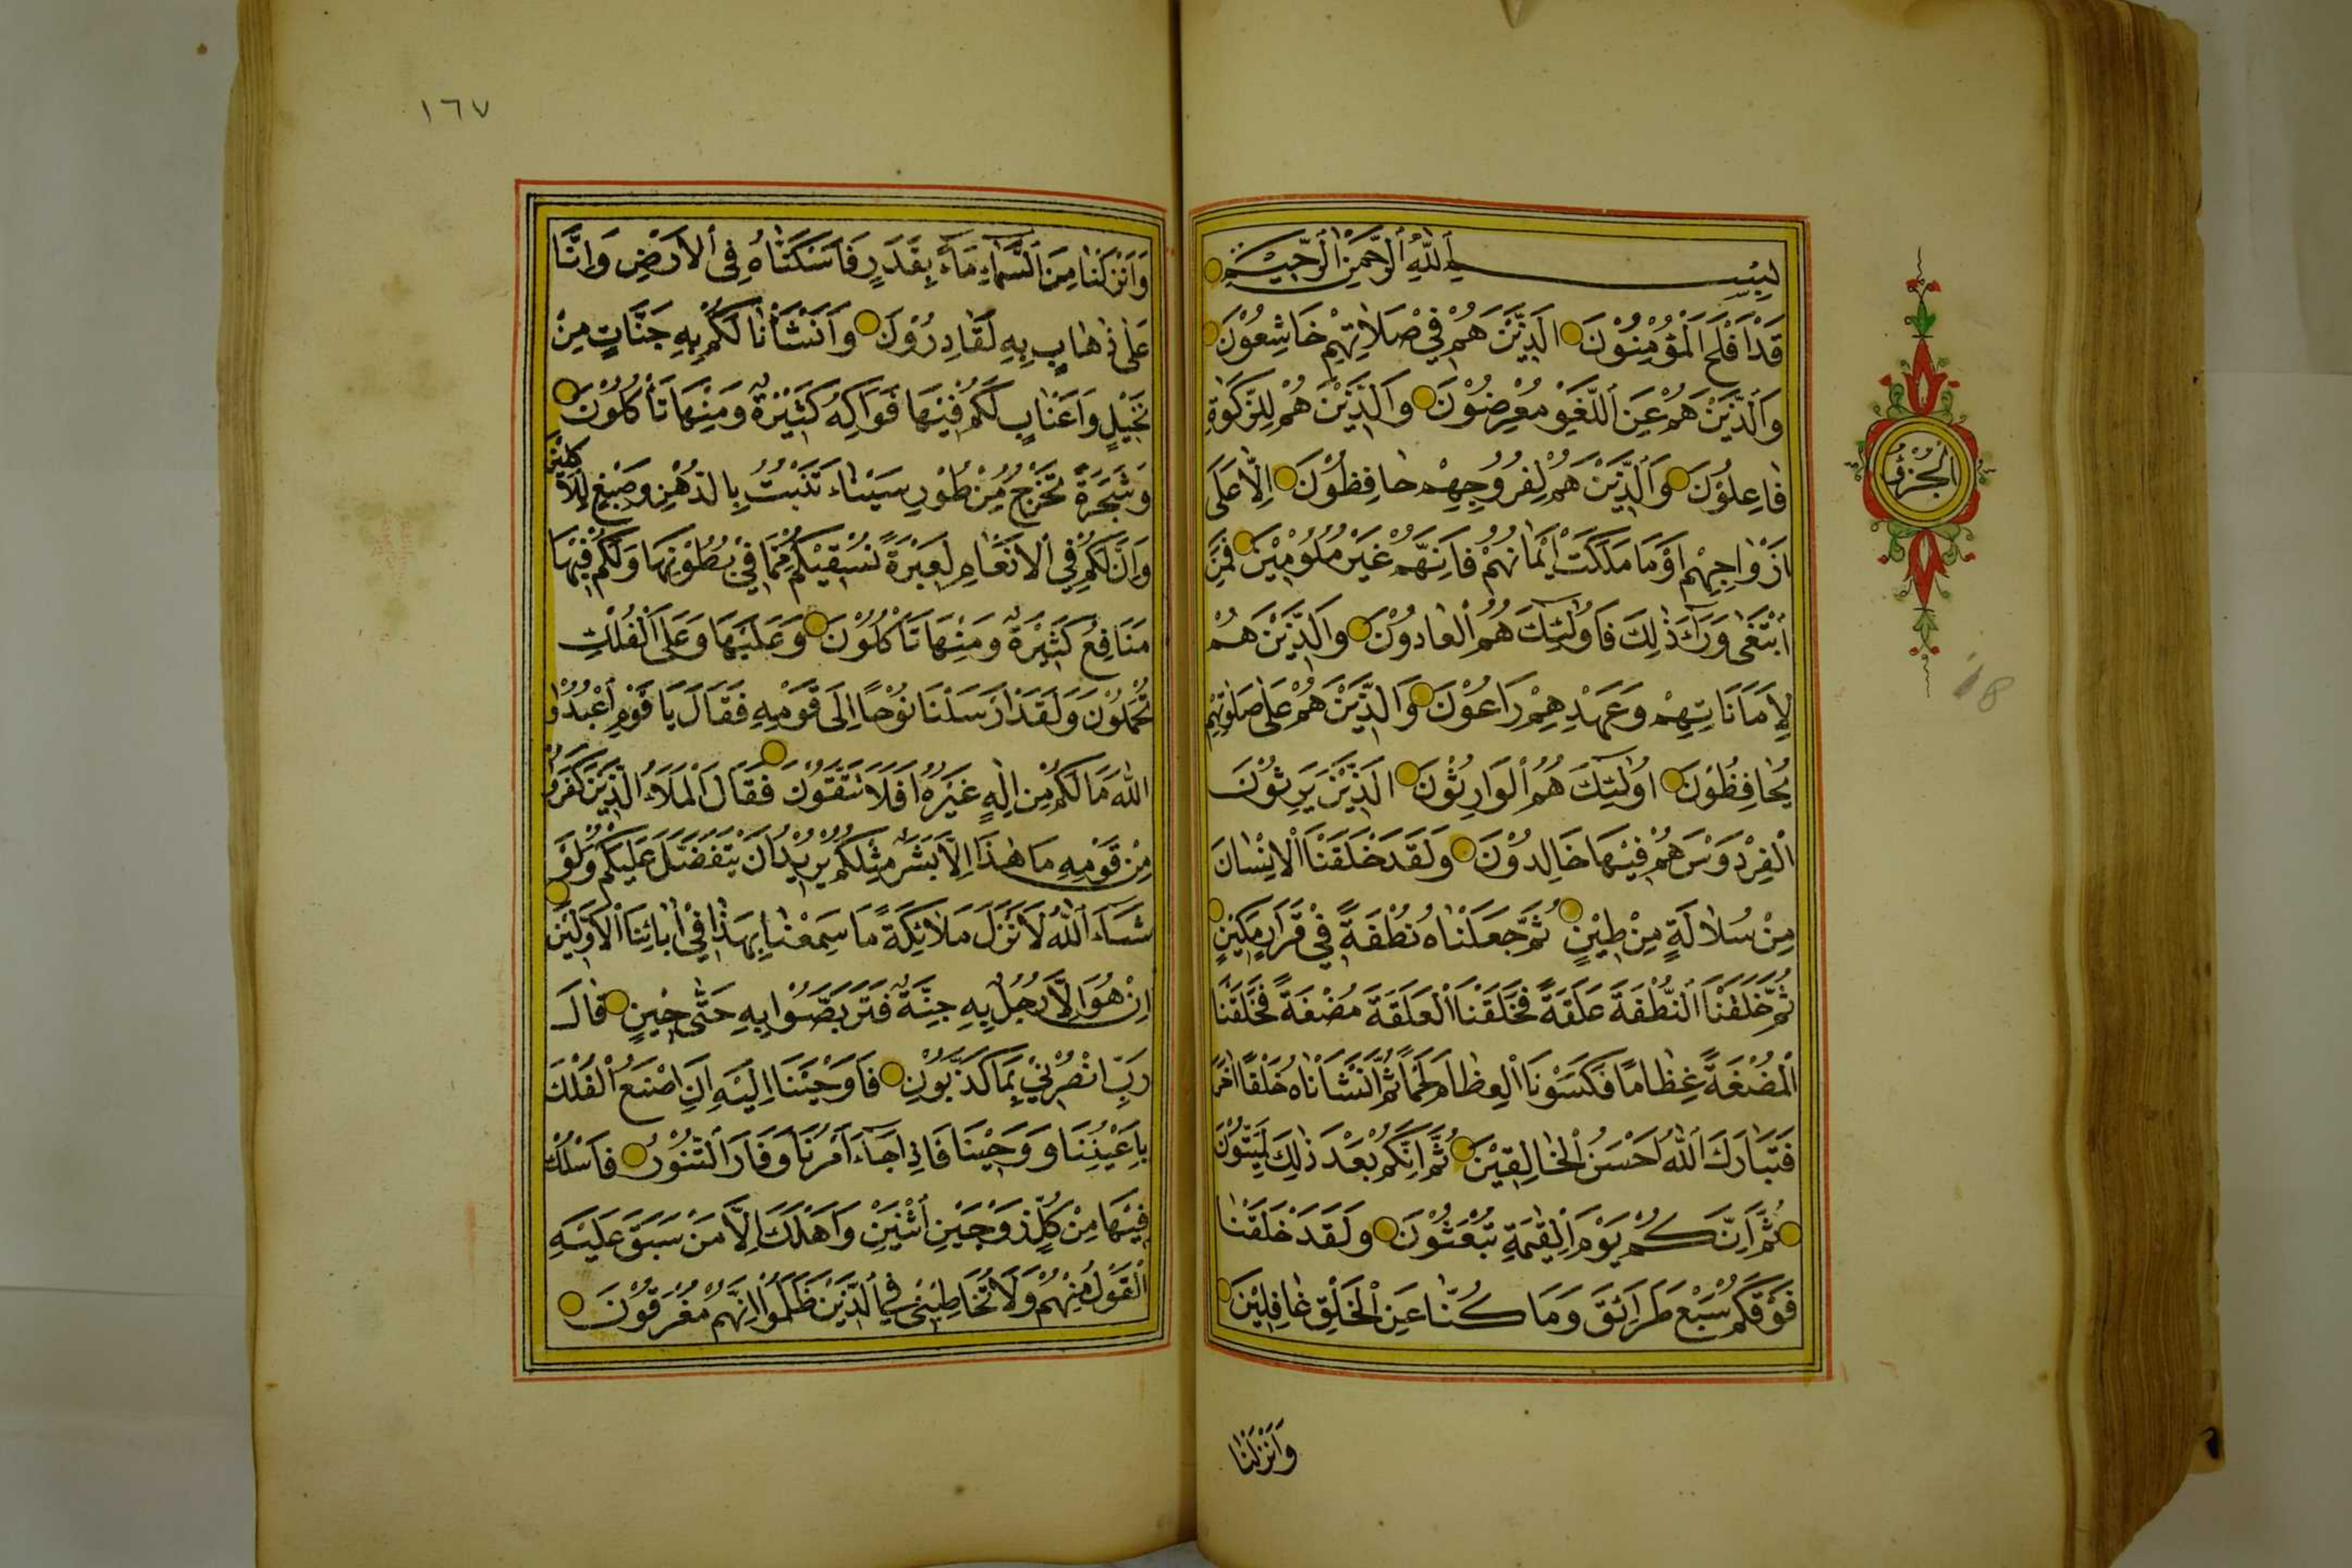 بِسْــــمِ اللّٰهِ الرَّحْمٰنِ الرَّحِيْمِ
قَدْ اَفْلَحَ الْمُؤْمِنُوْنَ الَّذِيْنَ هُمْ فِيْ صَلَاتِهِمْ خَاشِعُوْنَ
وَالَّذِيْنَ هُمْ عَنِ اللَّغْوِ مُعْرِضُوْنَ وَالَّذِيْنَ هُمْ لِلزَّكَوٰةِ
فَاعِلُوْنَ وَالَّذِيْنَ هُمْ لِفُرُوْجِهِمْ حَافِظُوْنَ اِلَّا عَلٰى
اَزْوَاجِهِمْ اَوْمَا مَلَكَتْ اَيْمَانُهُمْ فَاِنَّهُمْ غَيْرُ مَلُوْمِيْنَ فَمَنِ
ابْتَغٰى وَرَآءَ ذٰلِكَ فَاُولٰئِكَ هُمُ الْعَادُوْنَ وَالَّذِيْنَ هُمْ
لِاَمَانَاتِهِمْ وَعَهْدِهِمْ رَاعُوْنَ وَالَّذِيْنَ هُمْ عَلٰى صَلَوٰتِهِمْ
يُحَافِظُوْنَ اُولٰئِكَ هُمُ الْوَارِثُوْنَ الَّذِيْنَ يَرِثُوْنَ
الْفِرْدَوْسَ هُمْ فِيْهَا خَالِدُوْنَ وَلَقَدْ خَلَقْنَا الْاِنْسَانَ
مِنْ سُلَالَةٍ مِنْ طِيْنٍ ثُمَّ جَعَلْنَاهُ نُطْفَةً فِيْ قَرَارٍ مَكِيْنٍ
ثُمَّ خَلَقْنَا النُّطْفَةَ عَلَقَةً فَخَلَقْنَا الْعَلَقَةَ مُضْغَةً فَخَلَقْنَا
الْمُضْغَةَ عِظَامًا فَكَسَوْنَا الْعِظَامَ لَحْمًا ثُمَّ اَنْشَاْنَاهُ خَلْقًا اٰخَرَ
فَتَبَارَكَ اللّٰهُ اَحْسَنُ الْخَالِقِيْنَ ثُمَّ اِنَّكُمْ بَعْدَ ذٰلِكَ لَمَيِّتُوْنَ
ثُمَّ اِنَّكُمْ يَوْمَ الْقِيٰمَةِ تُبْعَثُوْنَ وَلَقَدْ خَلَقْنَا
فَوْقَكُمْ سَبْعَ طَرَائِقَ وَمَا كُنَّا عَنِ الْخَلْقِ غَافِلِيْنَ
وَاَنْزَلْنَا
الجزؤ
18
١٦٧
وَاَنْزَلْنَا مِنَ السَّمَاءِ مَآءً بِقَدَرٍ فَاَسْكَنَّاهُ فِى الْاَرْضِ وَاِنَّا
عَلٰى ذَهَابٍ بِهِ لَقَادِرُوْنَ وَاَنْشَاْنَا لَكُمْ بِهِ جَنَّاتٍ مِنْ
نَخِيْلٍ وَاَعْنَابٍ لَكُمْ فِيْهَا فَوَاكِهُ كَثِيْرَةٌ وَمِنْهَا تَاْكُلُوْنَ
وَشَجَرَةً تَخْرُجُ مِنْ طُوْرِ سَيْنَاءَ تَنْبُتُ بِالدُّهْنِ وَصِبْغٍ لِلْاٰكِلِيْنَ
وَاِنَّ لَكُمْ فِي الْاَنْعَامِ لَعِبْرَةً نُسْقِيْكُمْ مِمَّا فِيْ بُطُوْنِهَا وَلَكُمْ فِيْهَا
مَنَافِعُ كَثِيْرَةٌ وَمِنْهَا تَاْكُلُوْنَ وَعَلَيْهَا وَعَلَى الْفُلْكِ
تُحْمَلُوْنَ وَلَقَدْ اَرْسَلْنَا نُوْحًا اِلٰى قَوْمِهِ فَقَالَ يَا قَوْمِ اعْبُدُوا
اللّٰهَ مَا لَكُمْ مِنْ اِلٰهٍ غَيْرُهُ اَفَلَا تَتَّقُوْنَ فَقَالَ الْمَلَاُ الَّذِيْنَ كَفَرُوْا
مِنْ قَوْمِهِ مَا هٰذَا اِلَّا بَشَرٌ مِثْلُكُمْ يُرِيْدُ اَنْ يَتَفَضَّلَ عَلَيْكُمْ وَلَوْ
شَآءَ اللّٰهُ لَاَنْزَلَ مَلَائِكَةً مَا سَمِعْنَا بِهٰذَا فِيْ اٰبَائِنَا الْاَوَّلِيْنَ
اِنْ هُوَ اِلَّا رَجُلٌ بِهِ جِنَّةٌ فَتَرَبَّصُوْا بِهِ حَتّٰى حِيْنٍ قَالَ
رَبِّ انْصُرْنِيْ بِمَا كَذَّبُوْنِ فَاَوْحَيْنَا اِلَيْهِ اَنِ اصْنَعِ الْفُلْكَ
بِاَعْيُنِنَا وَوَحْيِنَا فَاِذَا جَآءَ اَمْرُنَا وَفَارَ التَّنُّوْرُ فَاسْلُكْ
فِيْهَا مِنْ كُلٍّ زَوْجَيْنِ اثْنَيْنِ وَاَهْلَكَ اِلَّا مَنْ سَبَقَ عَلَيْهِ
الْقَوْلُ مِنْهُمْ وَلَا تُخَاطِبْنِيْ فِي الَّذِيْنَ ظَلَمُوْا اِنَّهُمْ مُغْرَقُوْنَ